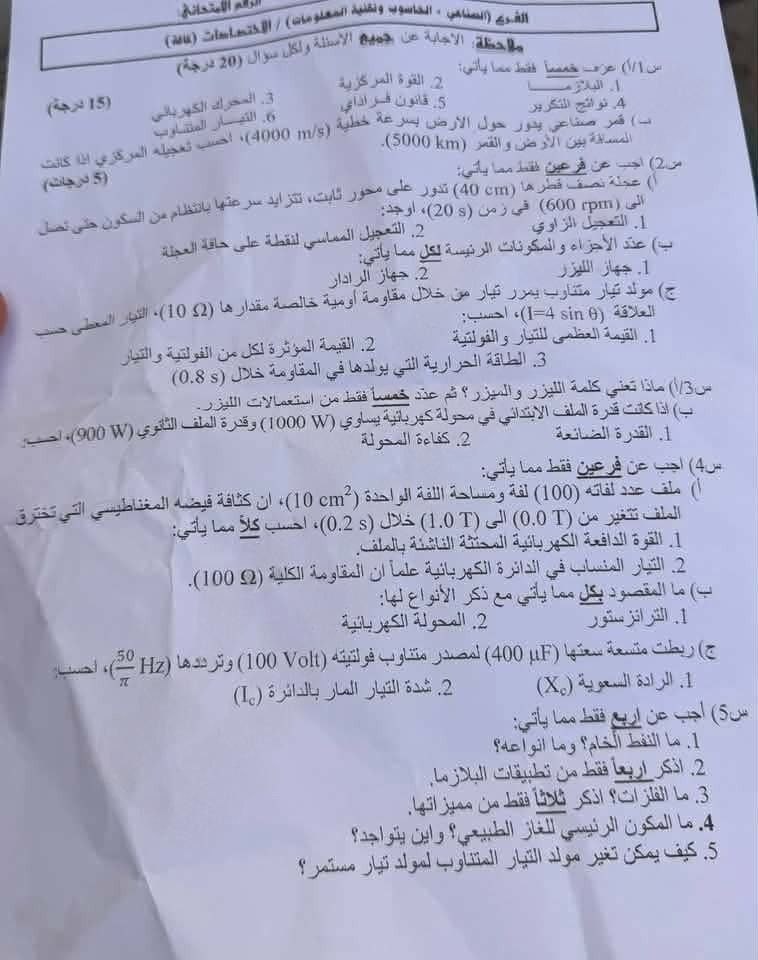 الرقم الامتحاني:
الفرع (الصناعي - الحاسوب وتقنية المعلومات) / الاختصاصات (كافة)
ملاحظة: الاجابة عن جميع الأسئلة ولكل سؤال (20 درجة)
س1/أ) عرف خمساً فقط مما يأتي: (15 درجة)
1. البلازما 2. القوة المركزية 3. المحرك الكهربائي
4. نواتج التكرير 5. قانون فراداي 6. التيار المتناوب
ب) قمر صناعي يدور حول الارض بسرعة خطية (4000 m/s)، احسب تعجيله المركزي اذا كانت
المسافة بين الأرض والقمر (5000 km). (5 درجات)
س2) اجب عن فرعين فقط مما يأتي:
أ) عجلة نصف قطرها (40 cm) تدور على محور ثابت، تتزايد سرعتها بانتظام من السكون حتى تصل
الى (600 rpm) في زمن (20 s)، اوجد:
1. التعجيل الزاوي 2. التعجيل المماسي لنقطة على حافة العجلة
ب) عدد الأجزاء والمكونات الرئيسة لكل مما يأتي:
1. جهاز الليزر 2. جهاز الرادار
ج) مولد تيار متناوب يمرر تيار من خلال مقاومة أومية خالصة مقدارها (10 Ω)، التيار المعطى حسب
العلاقة (I=4 sin θ)، احسب:
1. القيمة العظمى للتيار والفولتية 2. القيمة المؤثرة لكل من الفولتية والتيار
3. الطاقة الحرارية التي يولدها في المقاومة خلال (0.8 s)
س3/أ) ماذا تعني كلمة الليزر والميزر؟ ثم عدد خمساً فقط من استعمالات الليزر.
ب) اذا كانت قدرة الملف الابتدائي في محولة كهربائية يساوي (1000 W) وقدرة الملف الثانوي (900 W)، احسب:
1. القدرة الضائعة 2. كفاءة المحولة
س4) اجب عن فرعين فقط مما يأتي:
أ) ملف عدد لفاته (100) لفة ومساحة اللفة الواحدة (10 cm²)، ان كثافة فيضه المغناطيسي التي تخترق
الملف تتغير من (0.0 T) الى (1.0 T) خلال (0.2 s)، احسب كلاً مما يأتي:
1. القوة الدافعة الكهربائية المحتثة الناشئة بالملف.
2. التيار المنساب في الدائرة الكهربائية علماً ان المقاومة الكلية (100 Ω).
ب) ما المقصود بكل مما يأتي مع ذكر الأنواع لها:
1. الترانزستور 2. المحولة الكهربائية
ج) ربطت متسعة سعتها (400 μF) لمصدر متناوب فولتيته (100 Volt) وترددها (50/π Hz)، احسب:
1. الرادة السعوية (Xc) 2. شدة التيار المار بالدائرة (Ic)
س5) أجب عن اربع فقط مما يأتي:
1. ما النفط الخام؟ وما انواعه؟
2. اذكر اربعاً فقط من تطبيقات البلازما.
3. ما الفلزات؟ اذكر ثلاثاً فقط من مميزاتها.
4. ما المكون الرئيسي للغاز الطبيعي؟ واين يتواجد؟
5. كيف يمكن تغير مولد التيار المتناوب لمولد تيار مستمر؟